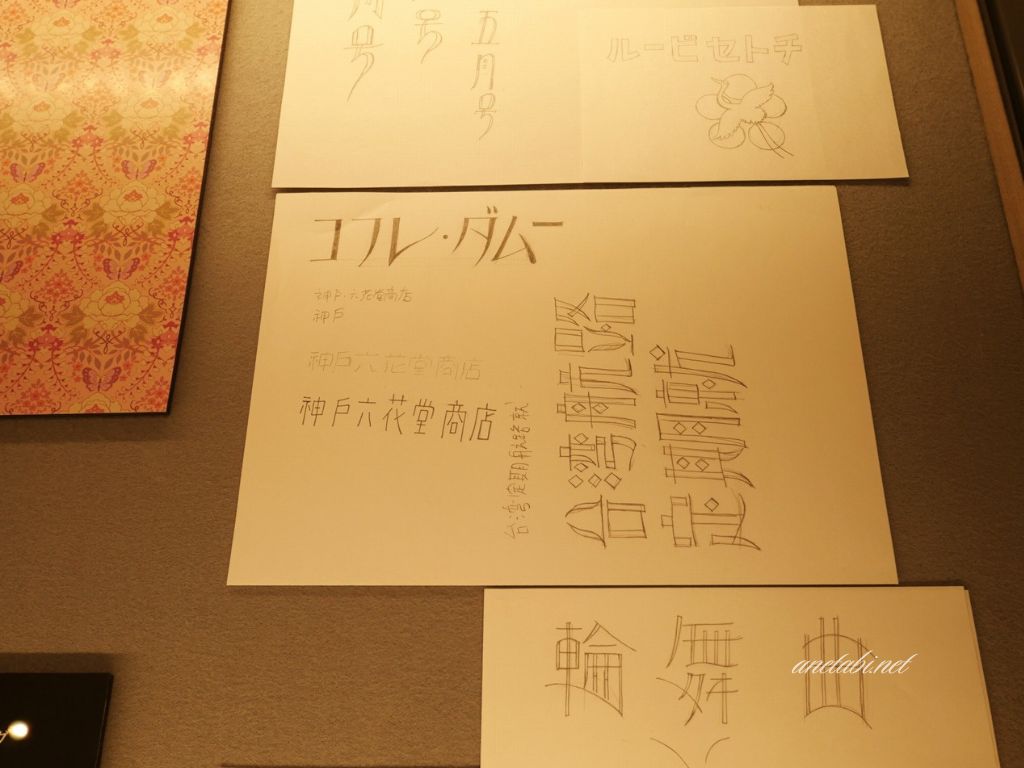 号
号
五月号
チトセビール
コフレ・ダムー
神戸・六花堂商店
神戸
神戸六花堂商店
神戸六花堂商店
台湾定期航路
台灣航路
定期就航
輪舞曲
anetabi.net